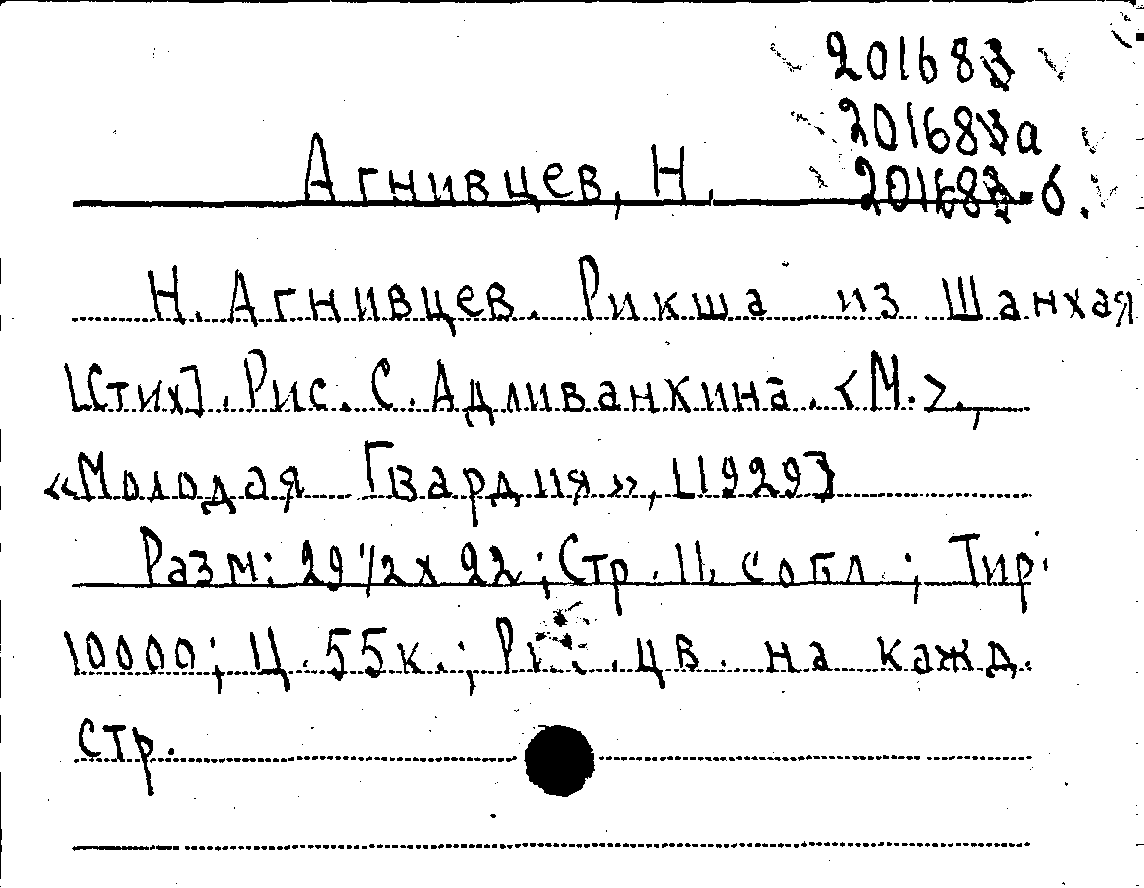 201683
201683а
201683-б.
Агнивцев, Н.
Н. Агнивцев. Рикша из Шанхая
[Стих]. Рис. С. Адливанкина. <М.>,
«Молодая Гвардия», [1929]
Разм: 29 1/2 х 22; Стр. 11, с обл.; Тир.
10000; Ц. 55к.; Рис. цв. на кажд.
стр.